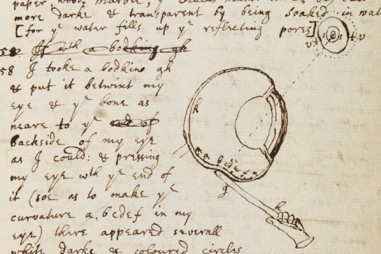 more darke & transparent by being soaked in wat
[for yᵉ water fills up yᵉ reflecting pores]
58 I tooke a bodkine gh
& put it betwixt my
eye & yᵉ bone as
neare to yᵉ
backside of my eye
as I could: & pressing
my eye wᵗʰ yᵉ end of
it (soe as to make yᵉ
curvature a,bcdef in my
eye) there appeared severall
white darke & coloured circles